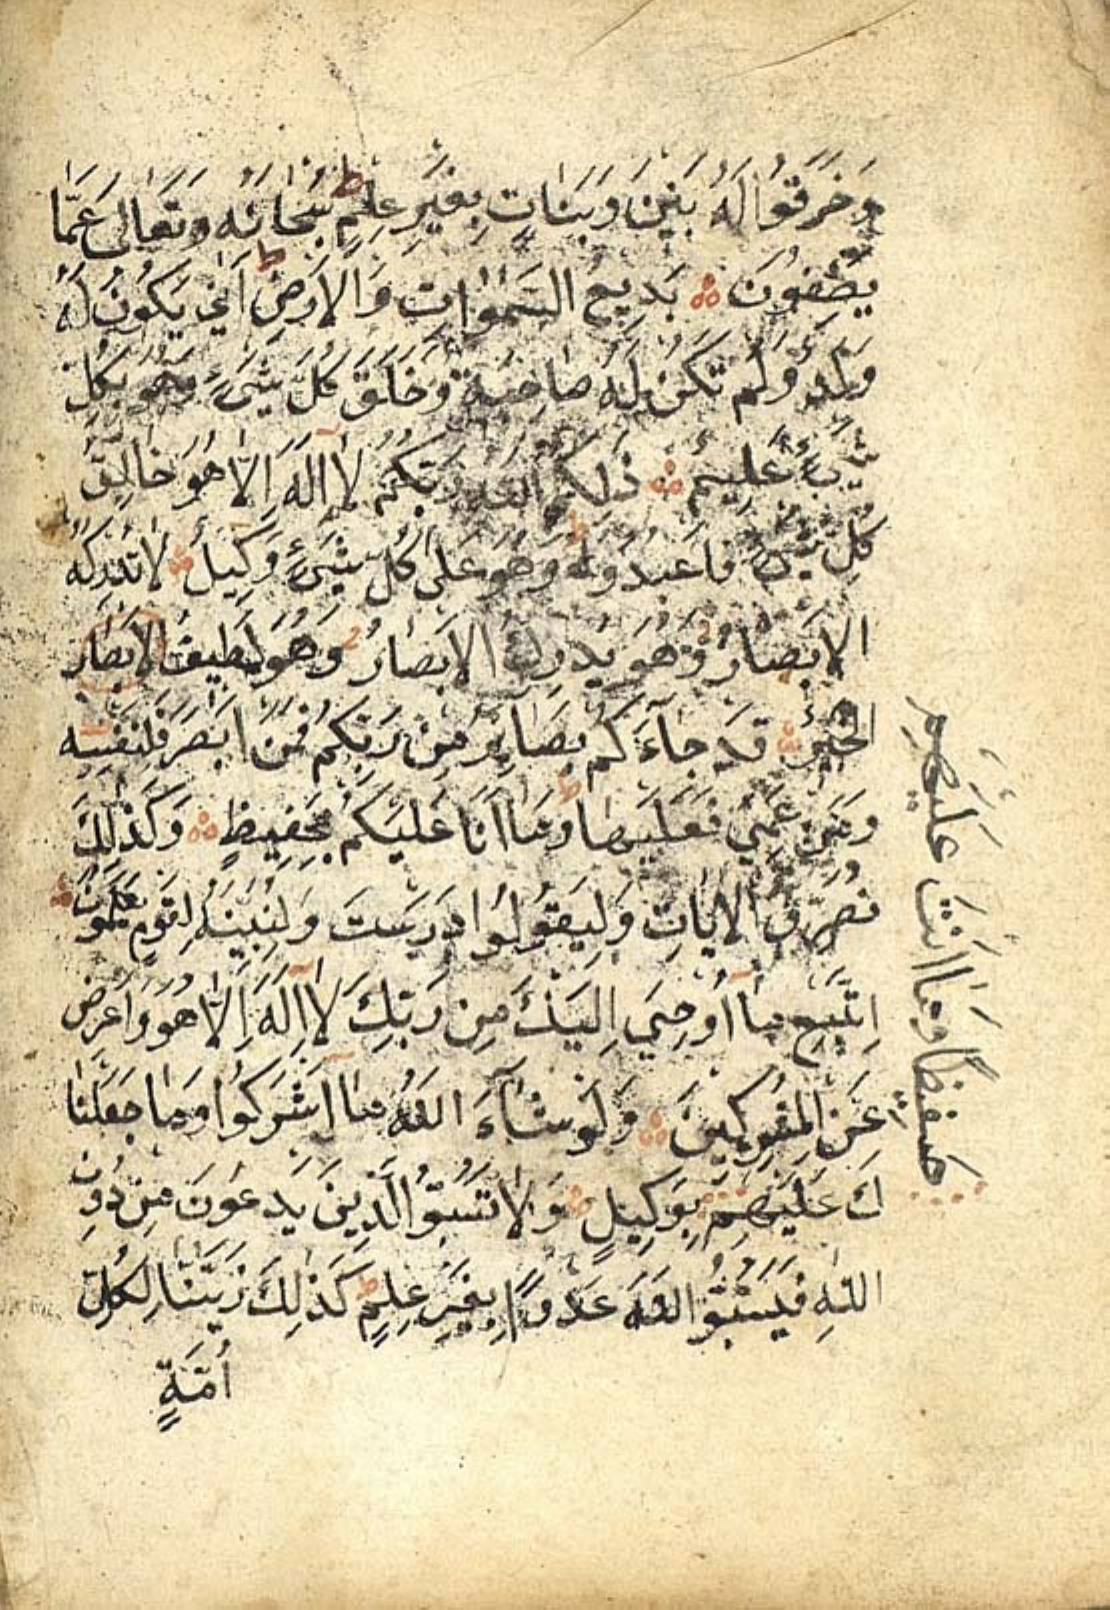 وَخَرَقُوا لَهُ بَنِينَ وَبَنَاتٍ بِغَيْرِ عِلْمٍ ط سُبْحَانَهُ وَتَعَالَى عَمَّا
يَصِفُونَ بَدِيعُ السَّمٰوَاتِ وَالْاَرْضِ ط اَنّٰي يَكُونُ لَهُ
وَلَدٌ وَلَمْ تَكُنْ لَهُ صَاحِبَةٌ وَخَلَقَ كُلَّ شَيْءٍ وَهُوَ بِكُلِّ
شَيْءٍ عَلِيمٌ ذٰلِكُمُ اللّٰهُ رَبُّكُمْ لَا اِلٰهَ اِلَّا هُوَ خَالِقُ
كُلِّ شَيْءٍ فَاعْبُدُوهُ ط وَهُوَ عَلَى كُلِّ شَيْءٍ وَكِيلٌ لَا تُدْرِكُهُ
الْاَبْصَارُ وَهُوَ يُدْرِكُ الْاَبْصَارُ وَهُوَ لَطِيفُ الْاَبْصَارَ
الْخَبِيرُ قَدْ جَآءَكُمْ بَصَآئِرُ مِنْ رَبِّكُمْ فَمَنْ اَبْصَرَ فَلِنَفْسِهِ
وَمَنْ عَمِيَ فَعَلَيْهَا ط وَمَا اَنَا عَلَيْكُمْ بِحَفِيظٍ وَكَذٰلِكَ
نُصَرِّفُ الْاٰيَاتِ وَلِيَقُولُوا دَرَسْتَ وَلِنُبَيِّنَهُ لِقَوْمٍ يَعْلَمُونَ
اِتَّبِعْ مَا اُوحِيَ اِلَيْكَ مِنْ رَبِّكَ لَا اِلٰهَ اِلَّا هُوَ وَاَعْرِضْ
عَنِ الْمُشْرِكِينَ وَلَوْ شَآءَ اللّٰهُ مَا اَشْرَكُوا وَمَا جَعَلْنَا
كَ عَلَيْهِمْ بِوَكِيلٍ وَلَا تَسُبُّوا الَّذِينَ يَدْعُونَ مِنْ دُونِ
اللّٰهِ فَيَسُبُّوا اللّٰهَ عَدْوًا بِغَيْرِ عِلْمٍ ط كَذٰلِكَ زَيَّنَّا لِكُلِّ
اُمَّةٍ
عَلَيْهِمْ حَفِيظًا وَمَا اَنْتَ عَلَيْهِمْ